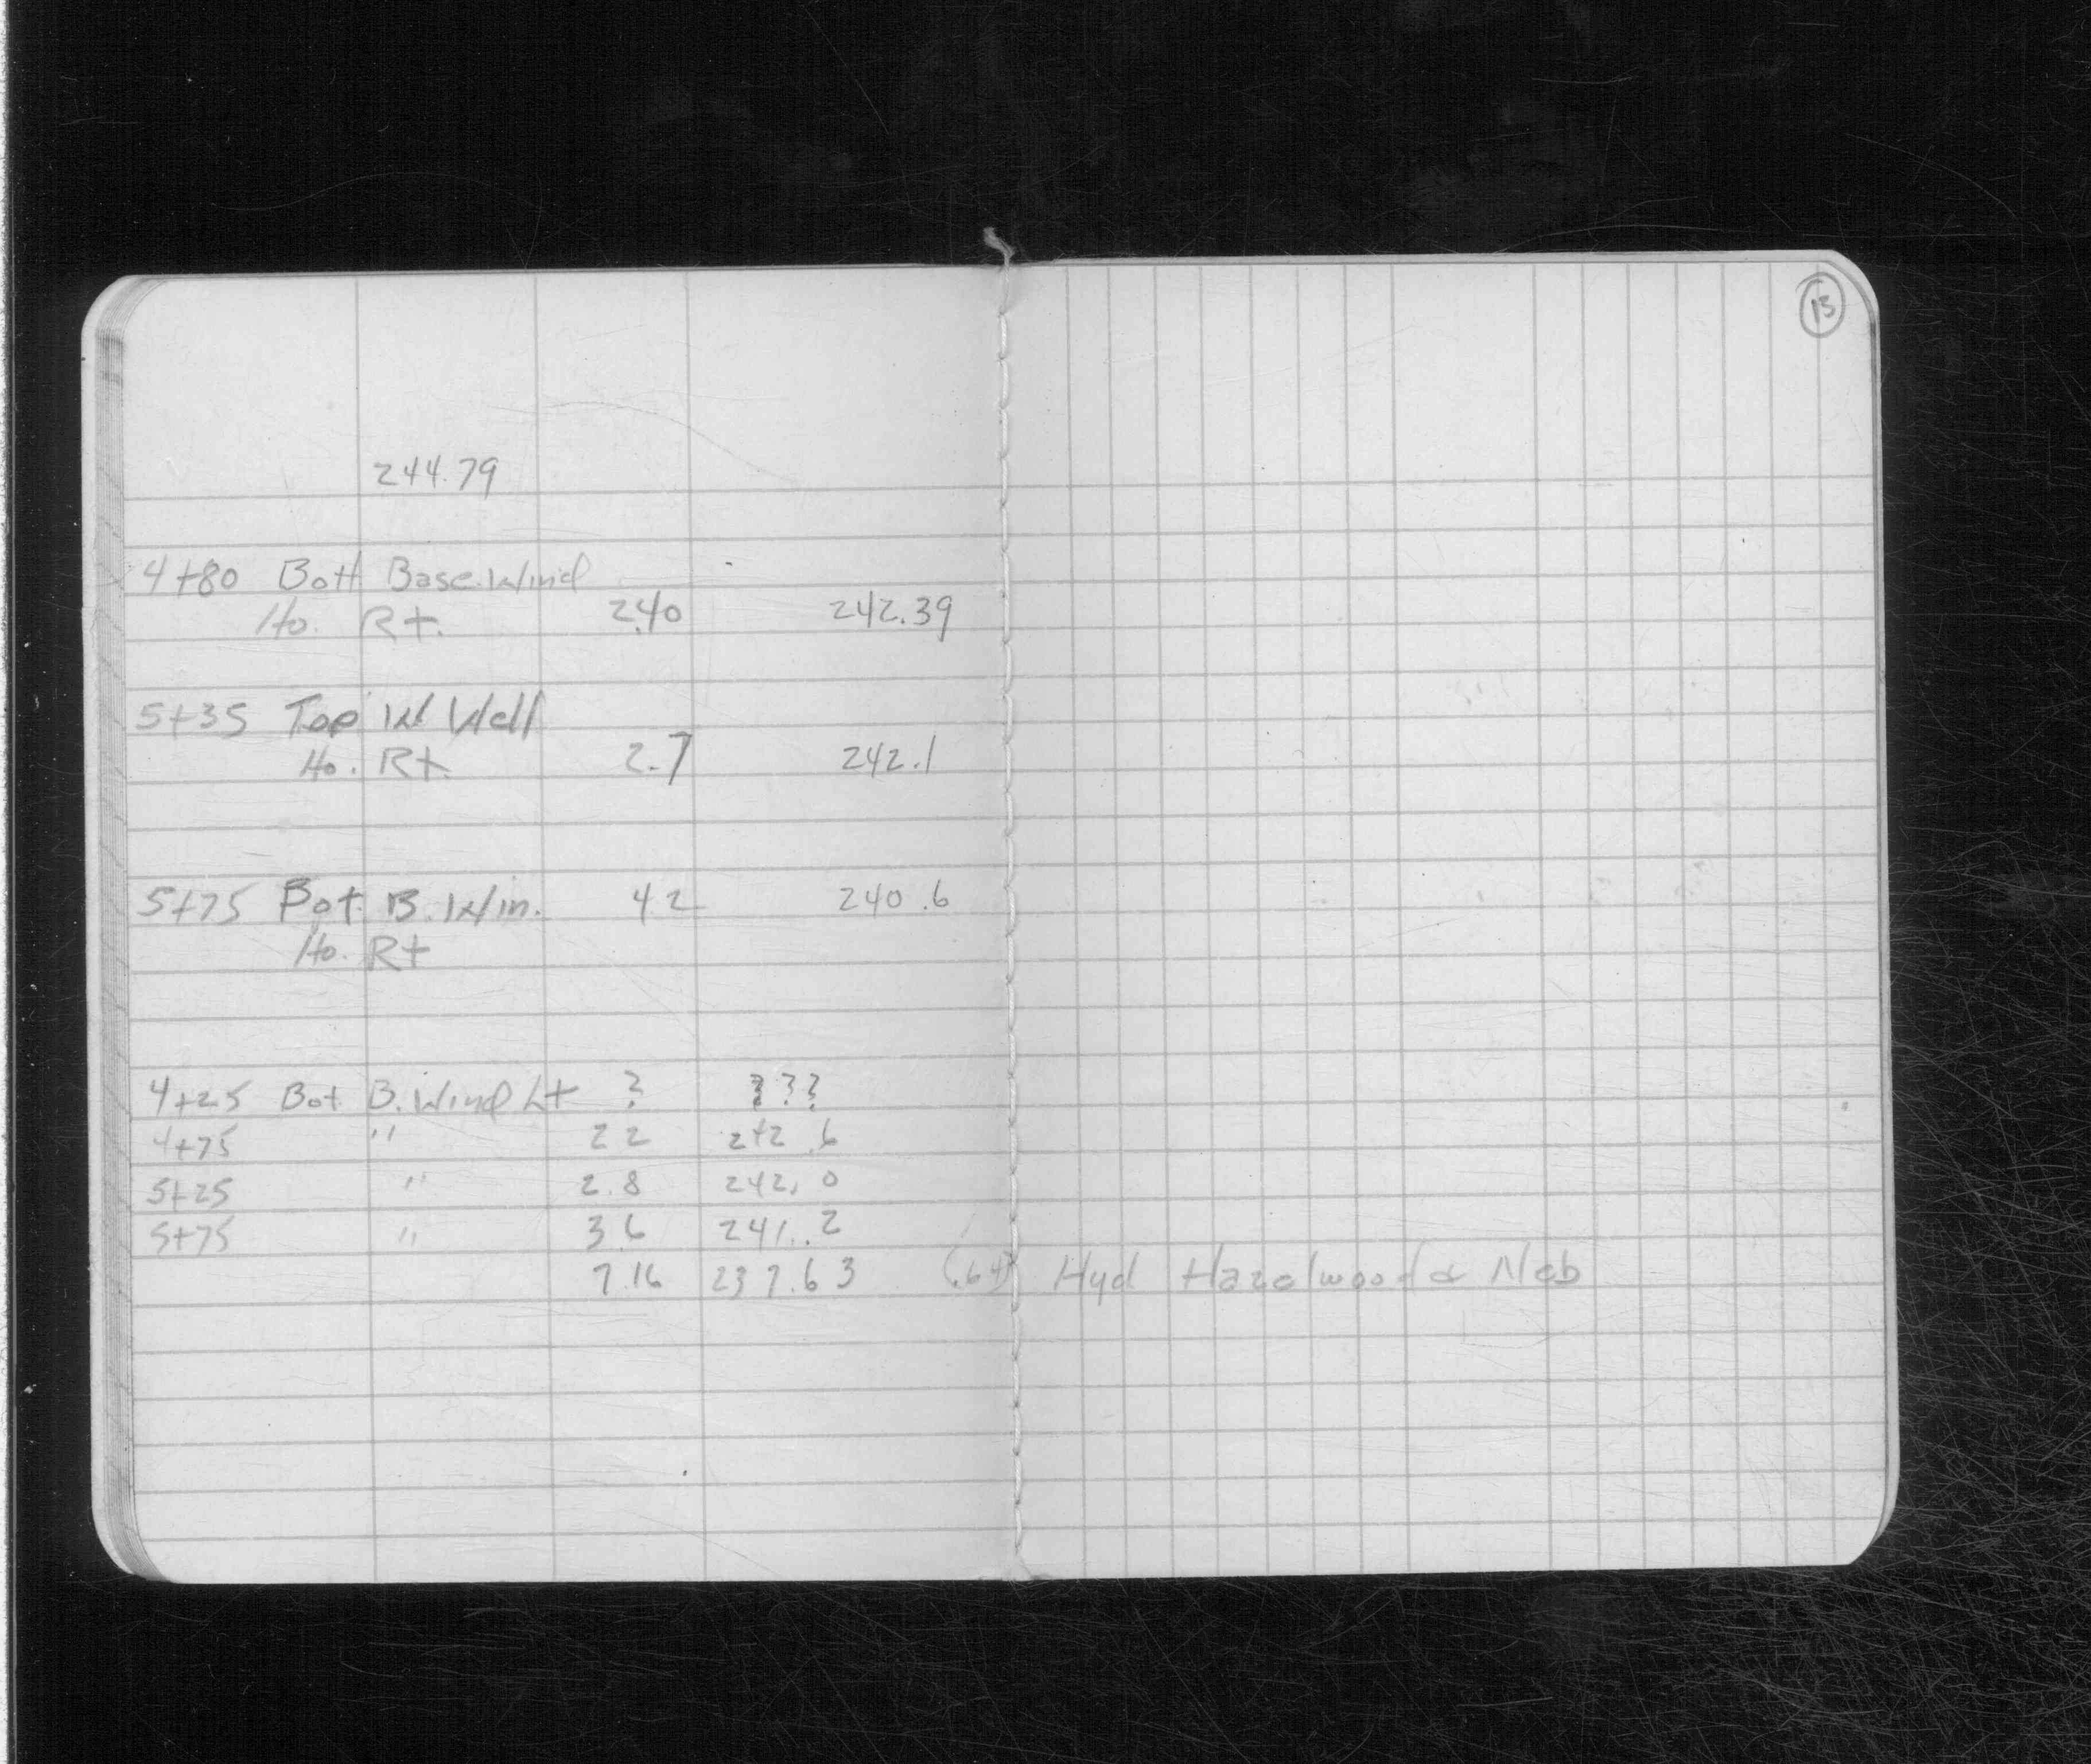 13
244.79
4+80 Bott Base.Wind
Ho. Rt. 2.40 242.39
5+35 Top W Well
Ho. Rt. 2.7 242.1
5+75 Bot. B. Win. 42 240.6
Ho. Rt
4+25 Bot. B. Wind Lt ? ???
4+75 " 22 242.6
5+25 " 2.8 242.0
5+75 " 36 241.2
7.16 237.63 (.64) Hyd Hazelwood & Neb